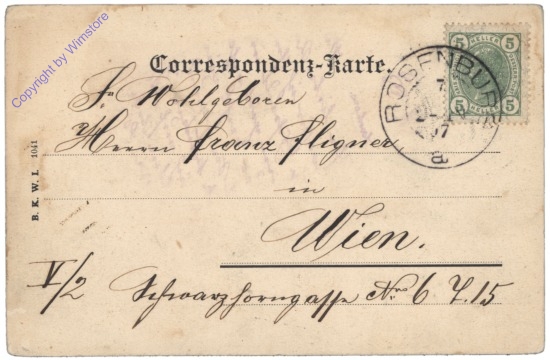 Copyright by Wimstore
5 HELLER 5
5 5
Correspondenz-Karte.
ROSENBURG
7
07
a
Sr Wohlgeboren
Herrn Franz Fligner
in
Wien.
V/2 Schwarzhorngasse Nro 6 T. 15
B. K. W. I. 1041